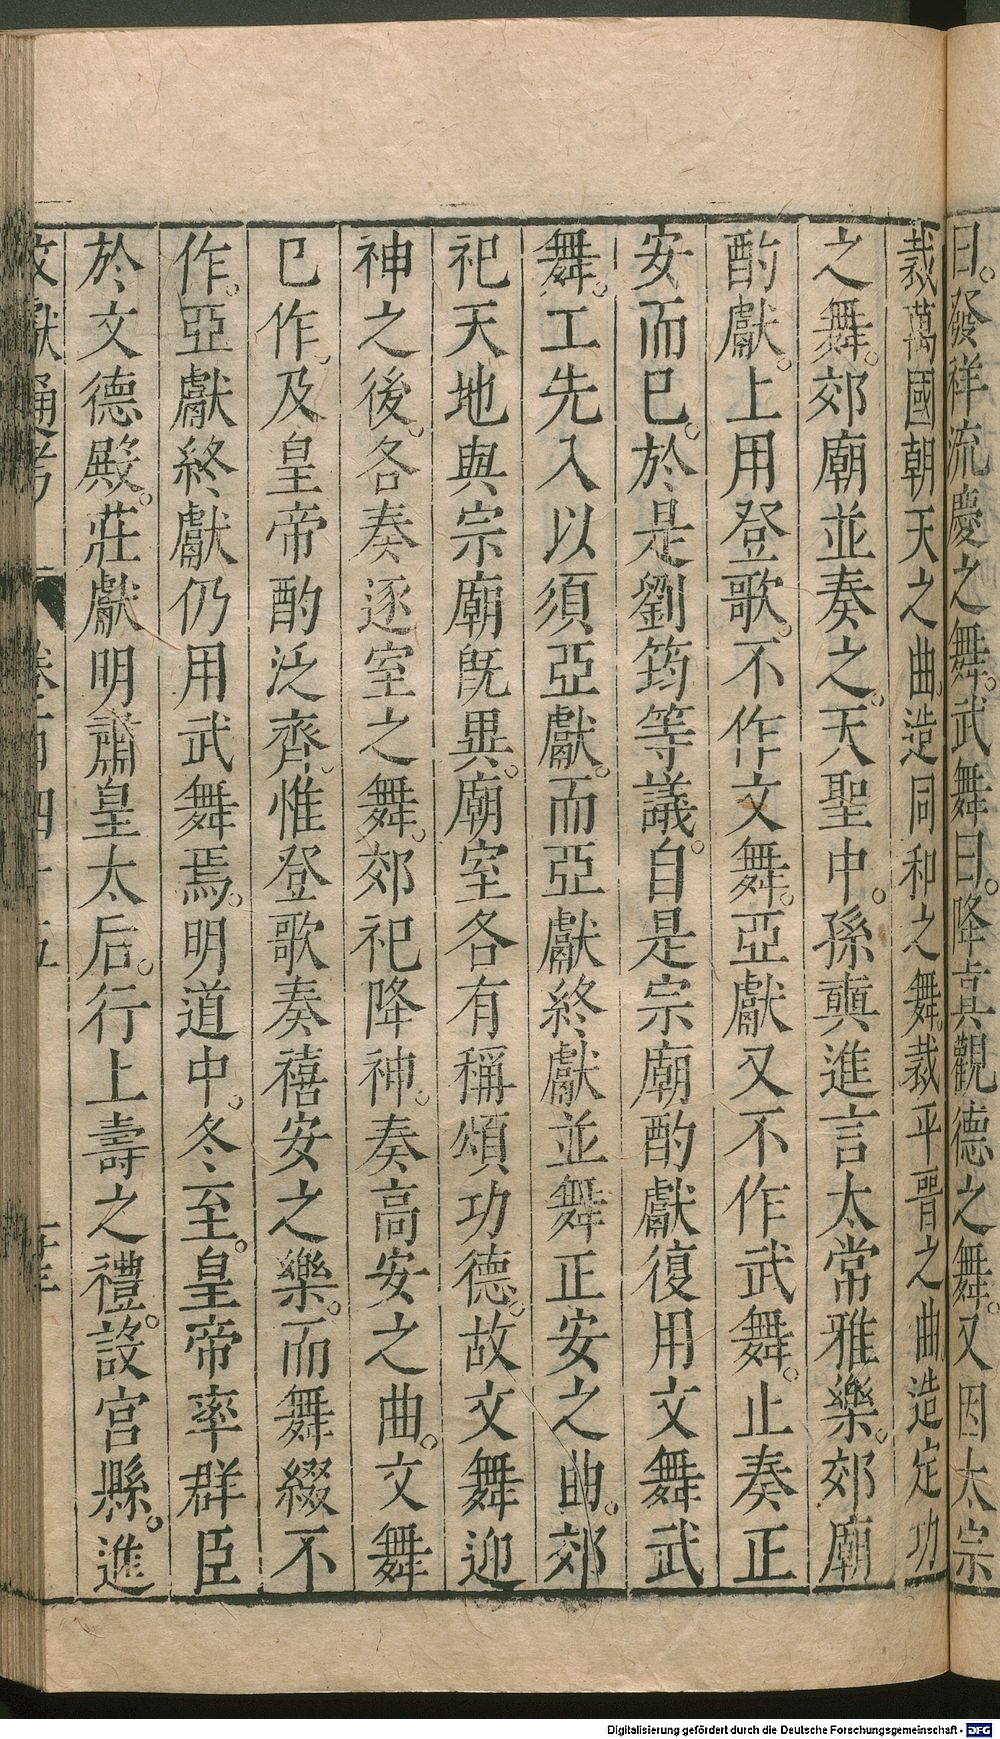 曰。發祥流慶之舞。武舞曰。降真觀德之舞。又因太宗
裁萬國朝天之曲。造同和之舞。裁平晉之曲。造定功
之舞。郊廟並奏之。天聖中。孫奭進言太常雅樂。郊廟
酌獻。上用登歌。不作文舞。亞獻又不作武舞。止奏正
安而已。於是劉筠等議。自是宗廟酌獻復用文舞武
舞。工先入以須亞獻。而亞獻終獻並舞正安之曲。郊
祀天地與宗廟既異。廟室各有稱頌功德。故文舞迎
神之後。各奏逐室之舞。郊祀降神。奏高安之曲。文舞
已作。及皇帝酌泛齊。惟登歌奏禧安之樂。而舞綴不
作。亞獻終獻仍用武舞焉。明道中。冬至。皇帝率群臣
於文德殿。莊獻明肅皇太后。行上壽之禮。設宮縣。進
文獻通考 卷百四十五
Digitalisierung gefördert durch die Deutsche Forschungsgemeinschaft - DFG